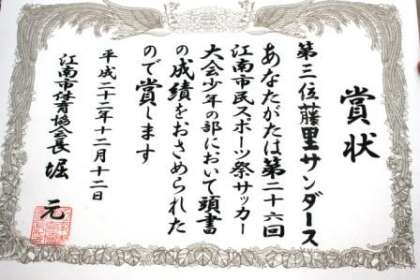 賞状
第三位藤里サンダース
あなたがたは第二十六回
江南市民スポーツ祭サッカー
大会少年の部において頭書
の成績をおさめられた
ので賞します
平成二十二年十二月十二日
江南市体育協会長 堀 元